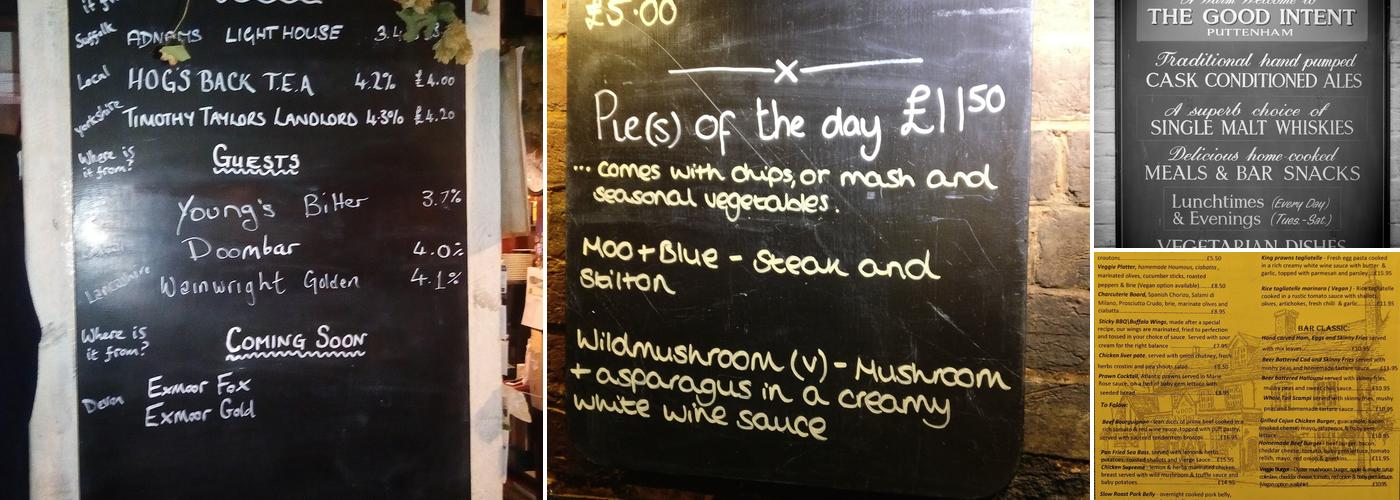 Suffolk ADNAMS LIGHTHOUSE
Local HOG'S BACK T.E.A 4.2% £4.00
Yorkshire TIMOTHY TAYLORS LANDLORD 4.3% £4.20
Where is it from?
GUESTS
Young's Bitter 3.7%
Doombar 4.0%
Lancashire Wainwright Golden 4.1%
Where is it from?
COMING SOON
Devon Exmoor Fox
Exmoor Gold
£5.00
Pie(s) of the day £1150
... comes with chips, or mash and
seasonal vegetables.
Moo + Blue - Steak and
Stilton
Wildmushroom (v) - Mushroom
+ asparagus in a creamy
white wine sauce
A Warm Welcome to
THE GOOD INTENT
PUTTENHAM
Traditional hand pumped
CASK CONDITIONED ALES
A superb choice of
SINGLE MALT WHISKIES
Delicious home-cooked
MEALS & BAR SNACKS
Lunchtimes (Every Day)
& Evenings (Tues.-Sat.)
VEGETARIAN DISHES
croutons £5.50
Veggie Platter, homemade Houmous, ciabatta,
marinated olives, cucumber sticks, roasted
peppers & Brie (Vegan option available) £8.50
Charcuterie Board, Spanish Chorizo, Salami di
Milano, Prosciutto Crudo, brie, marinate olives and
ciabatta £8.95
Sticky BBQ\Buffalo Wings, made after a special
recipe, our wings are marinated, fried to perfection
and tossed in your choice of sauce. Served with sour
cream for the right balance £7.95
Chicken liver pate, served with onion chutney, fresh
herbs crostini and pea shoots salad
Prawn Cocktail, Atlantic prawns served in Marie
Rose sauce, on a bed of baby gem lettuce with
seeded bread £8.95
To Follow:
Beef Bourguignon - lean dices of prime beef cooked in a
rich tomato & red wine sauce, topped with puff pastry,
served with sauteed tenderstem broccoli £16.95
Pan Fried Sea Bass, served with lemon & herbs
potatoes, roasted shallots and Vierge sauce £15.95
Chicken Supreme - lemon & herbs marinated chicken
breast served with wild mushroom & truffle sauce and
baby potatoes £14.95
Slow Roast Pork Belly - overnight cooked pork belly,
King prawns tagliatelle - Fresh egg pasta cooked
in a rich creamy white wine sauce with butter &
garlic, topped with parmesan and parsley £15.95
Rice tagliatelle marinara ( Vegan ) - Rice tagliatelle
cooked in a rustic tomato sauce with shallots,
olives, artichokes, fresh chilli & garlic £11.95
BAR CLASSIC:
Hand carved Ham, Eggs and Skinny Fries served
with mix leaves £10.95
Beer Battered Cod and Skinny Fries served with
mushy peas and homemade tartare sauce
Beer battered Halloumi served with skinny fries,
mushy peas and sweet chilli sauce £10.95
Whole Tail Scampi served with skinny fries, mushy
peas and homemade tartare sauce £10.95
Grilled Cajun Chicken Burger, guacamole, bacon,
smoked cheese, mayo, jalapenos & baby gem
lettuce
Homemade Beef Burger - beef burger, bacon,
cheddar cheese, tomato, baby gem lettuce, tomato
relish, mayo, red onion & gherkins £11.95